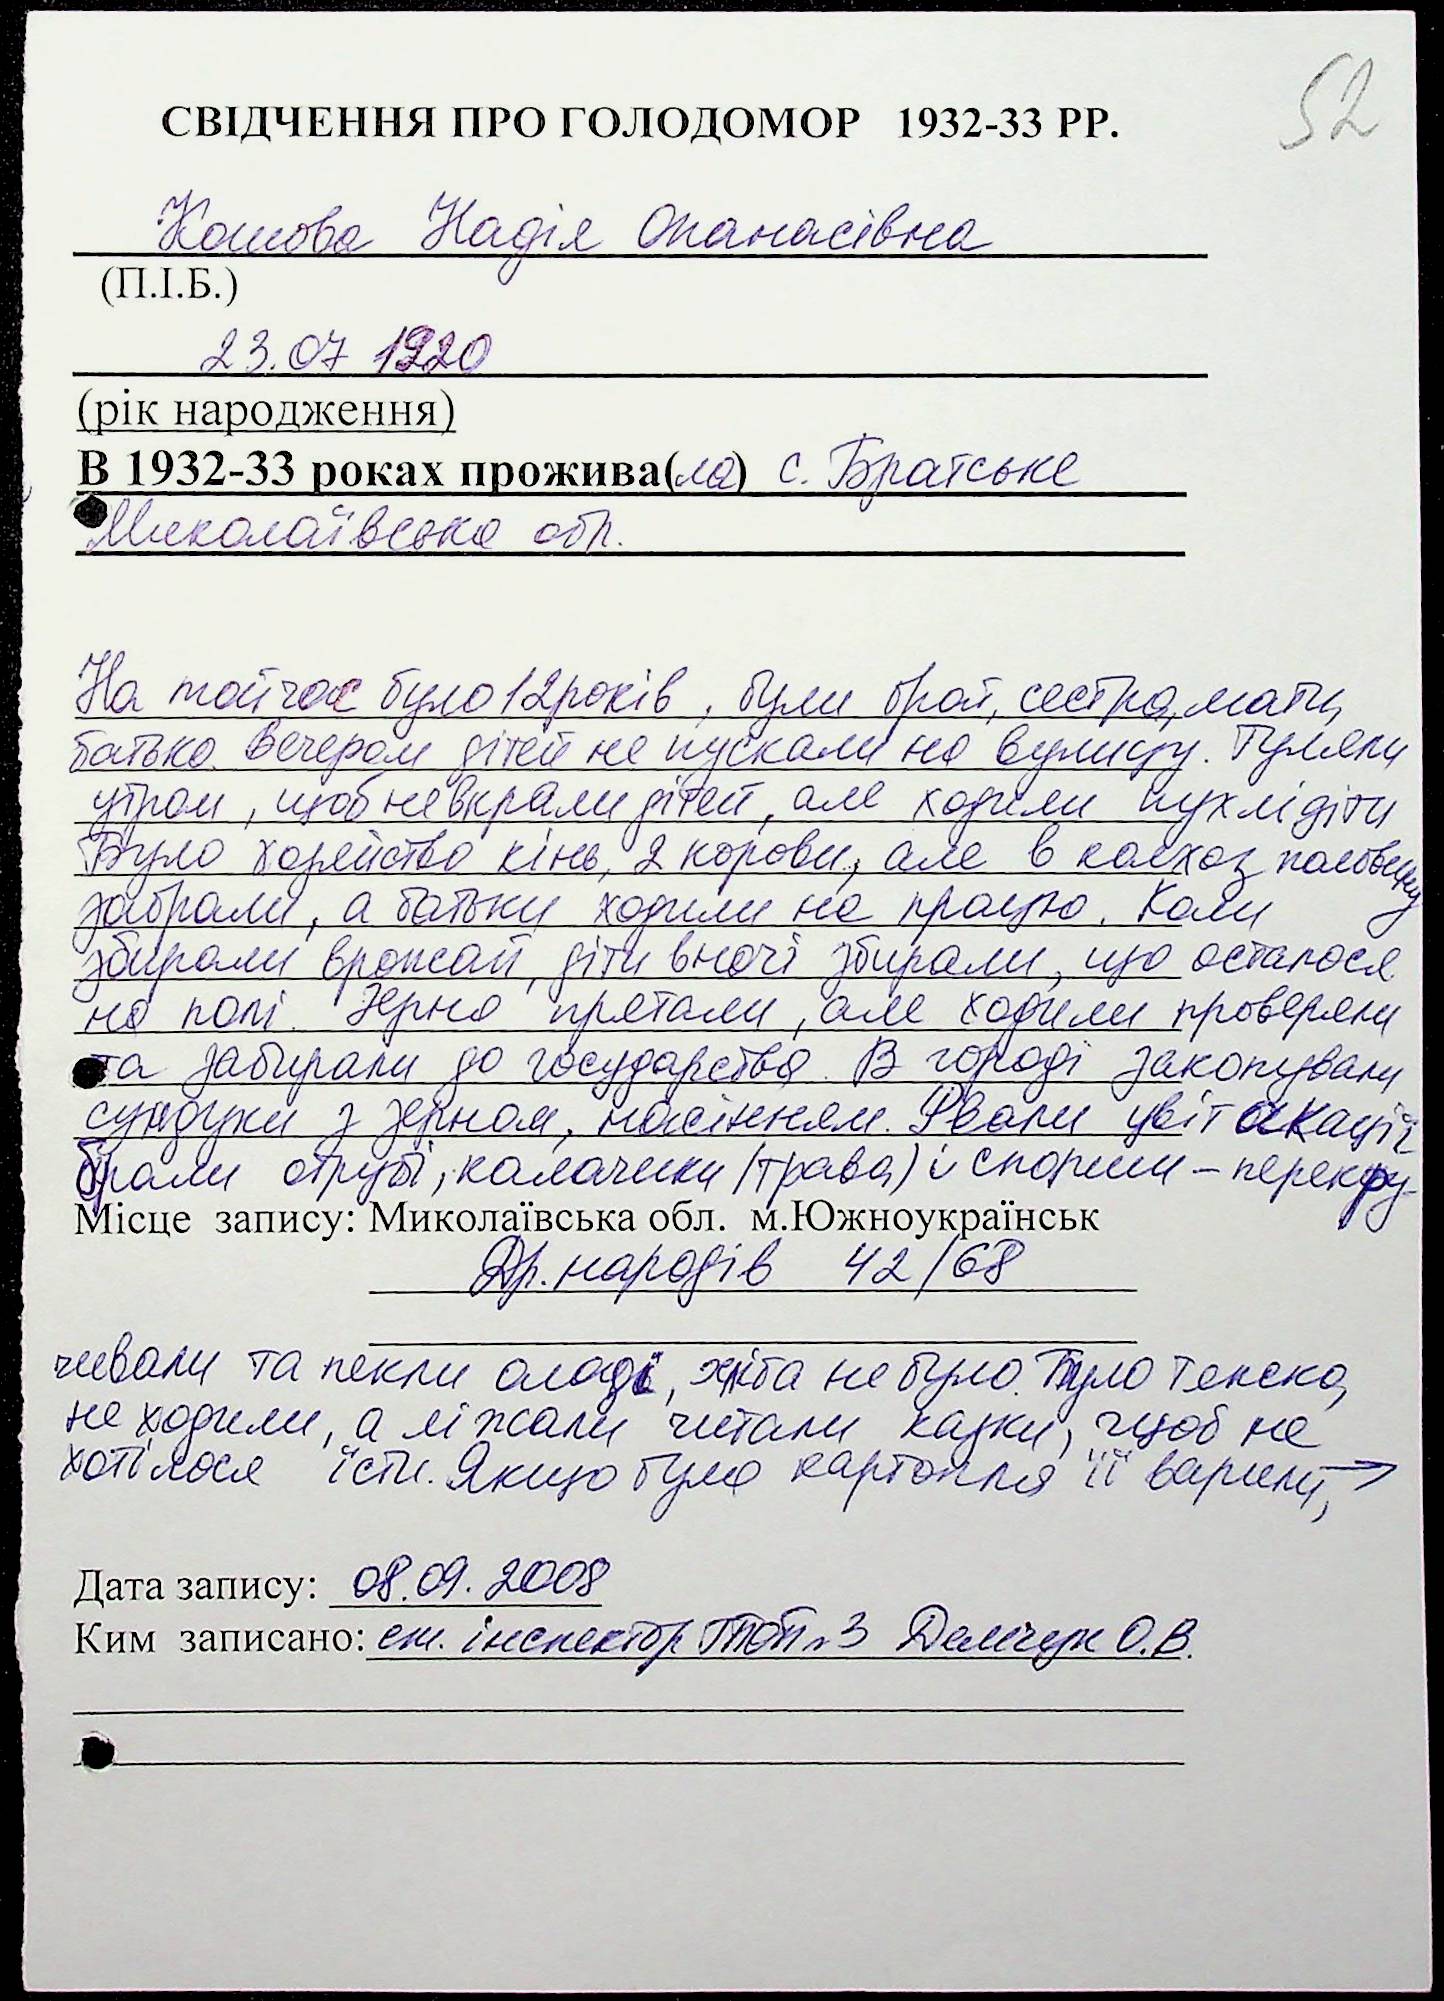 52
СВІДЧЕННЯ ПРО ГОЛОДОМОР 1932-33 РР.
Кошова Надія Опанасівна
(П.І.Б.)
23.07 1920
(рік народження)
В 1932-33 роках прожива(ла) с. Братське
Миколаївська обл.
На той час було 12 років, були брат, сестра, мати,
батько. Вечером дітей не пускали на вулицу. Гуляли
утром, щоб не вкрали дітей, але ходили пухлі діти
Було хозяйство кінь, 2 корови, але в колхоз половину
забрали, а батьки ходили на працю. Коли
збирали врожай, діти вночі збирали, що осталося
на полі. Зерно прятали, але ходили проверяли
та забирали до государства. В городі закопували
сундуки з зерном, насінням. Рвали цвіт акації
брали отрубі, калачики (трава) і спориш - перекру-
Місце запису: Миколаївська обл. м.Южноукраїнськ
Др. народів 42/68
чивали та пекли оладі, хліба не було. Було тяжко,
не ходили, а ліжали читали казки, щоб не
хотілося їсти. Якщо була картопля її варили, →
Дата запису: 08.09.2008
Ким записано: ст. інспектор №3 Демчук О.В.